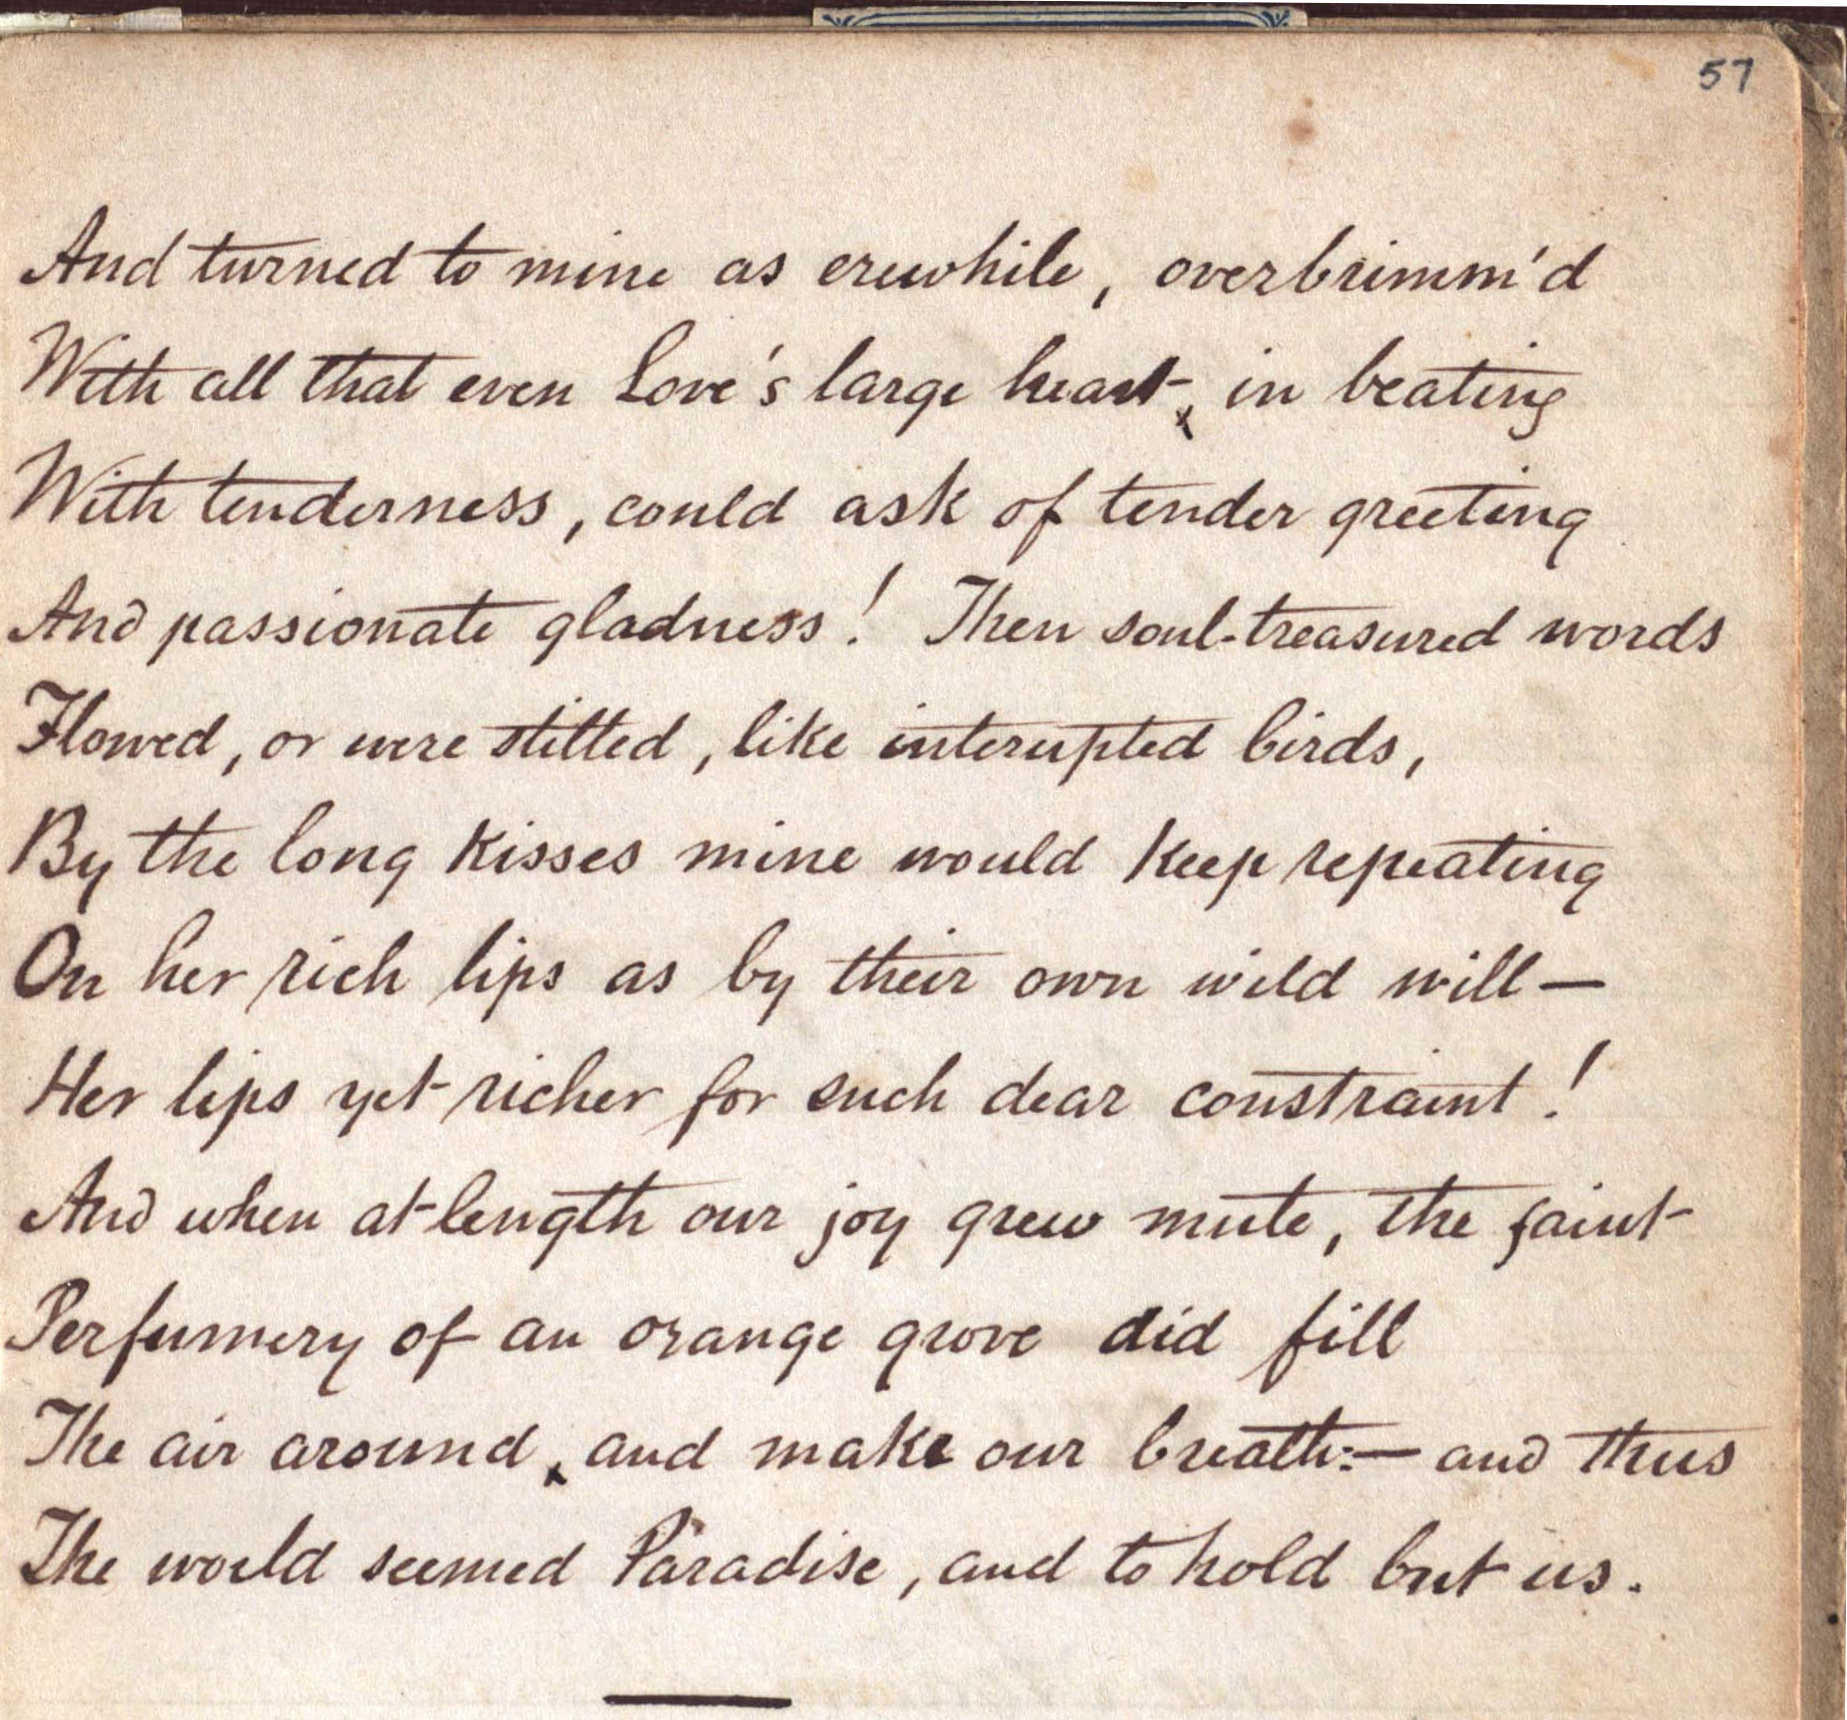 57
And turned to mine as erewhile, overbrimm'd
With all that even Love's large heart, in beating
With tenderness, could ask of tender greeting
And passionate gladness! Then soul-treasured words
Flowed, or were stilled, like interupted birds,
By the long kisses mine would keep repeating
On her rich lips as by their own wild will—
Her lips yet richer for such dear constraint!
And when at length our joy grew mute, the faint
Perfumery of an orange grove did fill
The air around, and make our breath:— and thus
The world seemed Paradise, and to hold but us.